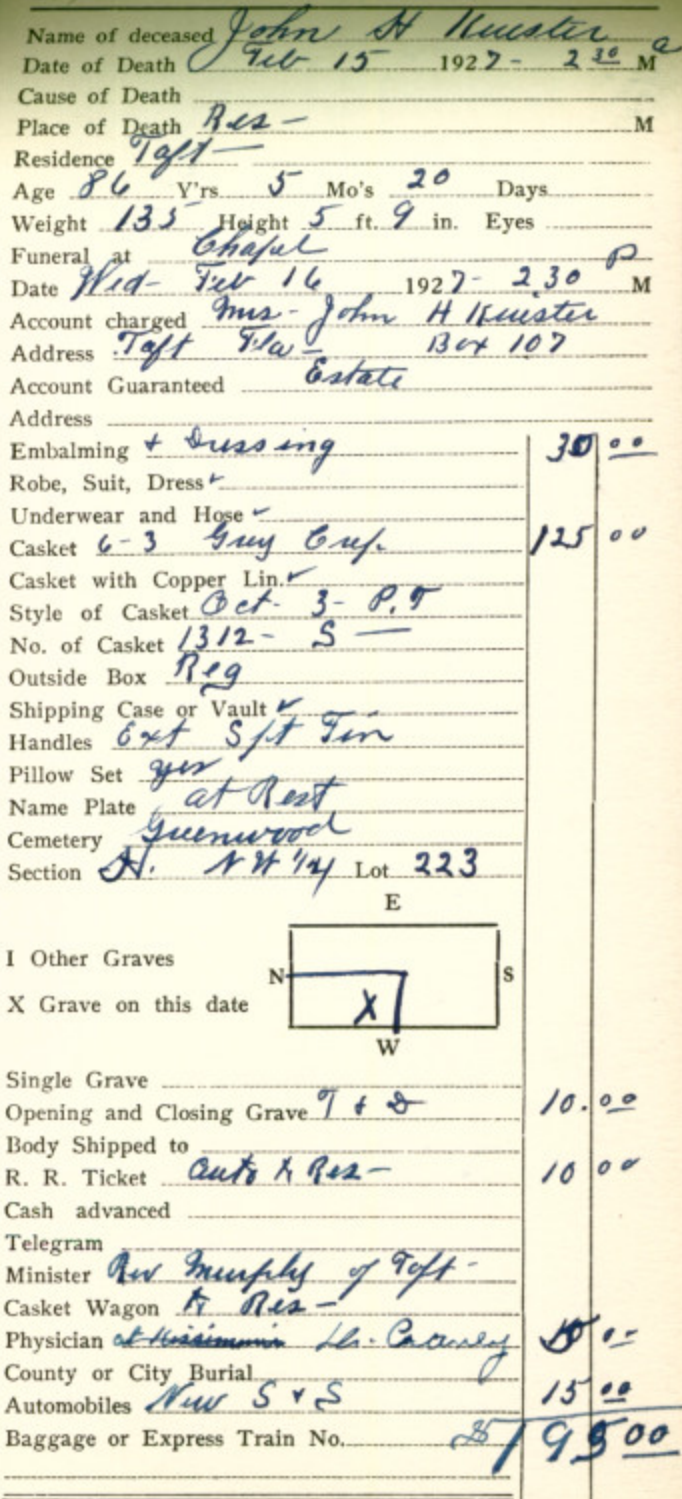 Name of deceased John H Kuester
Date of Death Feb 15 1927- 2 30 a M
Cause of Death
Place of Death Res- M
Residence Taft
Age 86 Y'rs 5 Mo's 20 Days
Weight 135 Height 5 ft. 9 in. Eyes
Funeral at Chapel
Date Wed- Feb 16 1927- 2 30 P M
Account charged Mrs- John H Kuester
Address Taft Fla- Box 107
Account Guaranteed Estate
Address
Embalming + Dressing 30 00
Robe, Suit, Dress ✓
Underwear and Hose ✓
Casket 6-3 Grey Crep. 125 00
Casket with Copper Lin. ✓
Style of Casket Oct- 3- P.T
No. of Casket 1312- S —
Outside Box Reg
Shipping Case or Vault ✓
Handles Ext Sft Tin
Pillow Set yes
Name Plate at Rest
Cemetery Greenwood
Section H. NW 1/4 Lot 223
E
I Other Graves
N S
X Grave on this date
X
W
Single Grave
Opening and Closing Grave T & D 10.00
Body Shipped to
R. R. Ticket auto to Res- 10 00
Cash advanced
Telegram
Minister Rev Murphy of Taft-
Casket Wagon to Res-
Physician at Kissimmee Dr.
County or City Burial
Automobiles New S & S 15 00
Baggage or Express Train No. $195 00